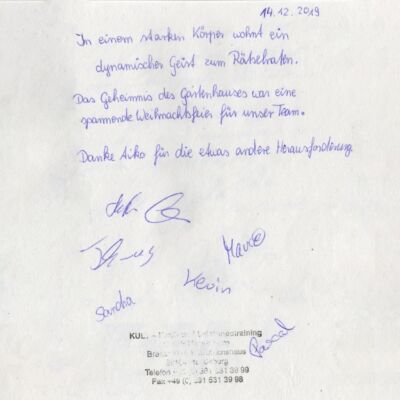 14.12.2019
In einem starken Körper wohnt ein
dynamischer Geist zum Rätselraten.
Das Geheimnis des Gartenhauses war eine
spannende Weihnachtsfeier für unser Team.
Danke Aiko für die etwas andere Herausforderung
Marie
Kevin
Sandra
Pascal
KUL
training
Telefon +49 (0) 391 531 39 99
Fax +49 (0) 391 531 39 98